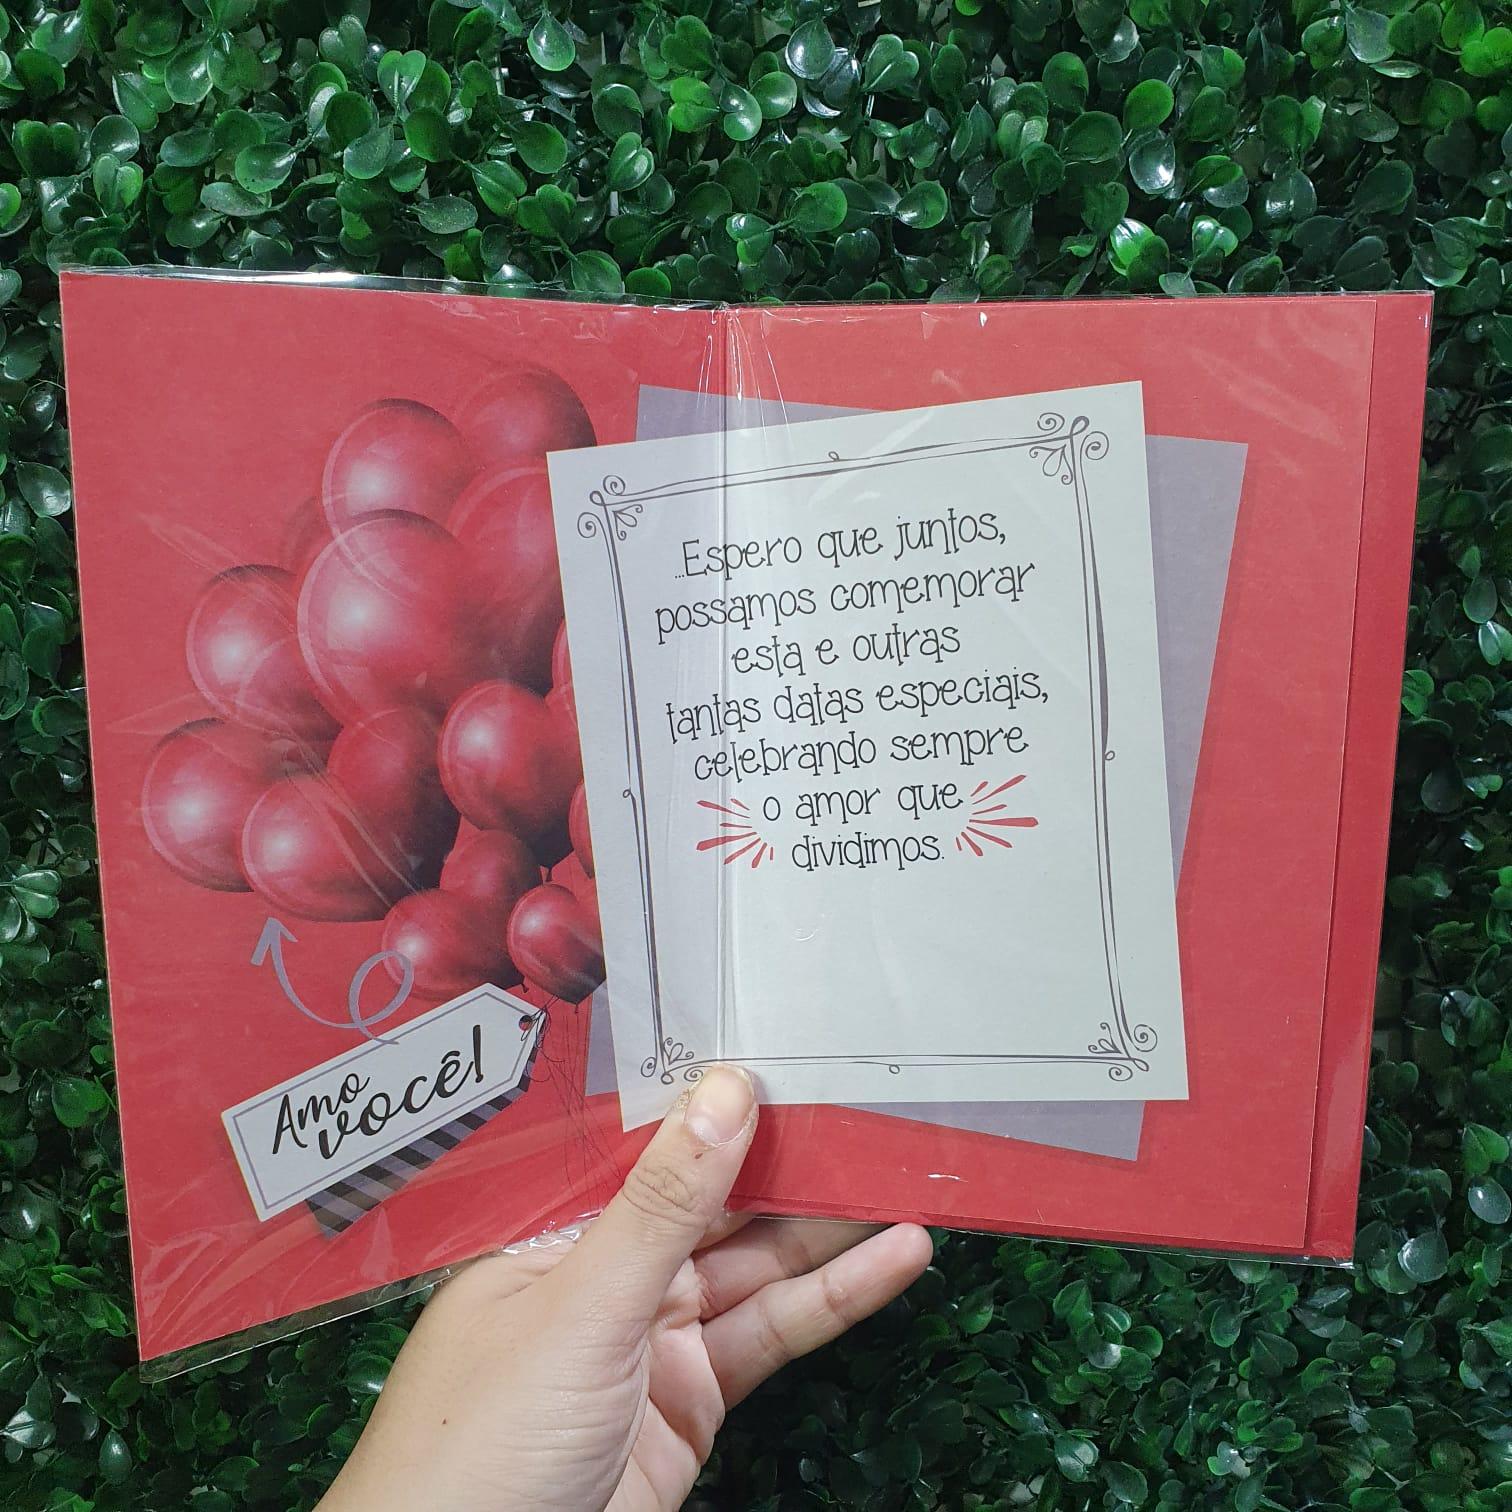 Amo
você!
...Espero que juntos,
possamos comemorar
esta e outras
tantas datas especiais,
celebrando sempre
o amor que
dividimos.